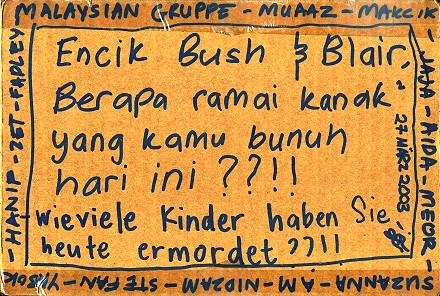 MALAYSIAN GRUPPE - MUAAZ - MAKCIK
- JAJA - AIDA - MEOR -
SUZANNA - AM - NIDZAM - STEFAN -
- HANIP - ZET - FADLEY
Encik Bush & Blair,
Berapa ramai kanak"
yang kamu bunuh
hari ini ??!!
- wieviele Kinder haben Sie
heute ermordet ??!!
27 MÄRZ 2003